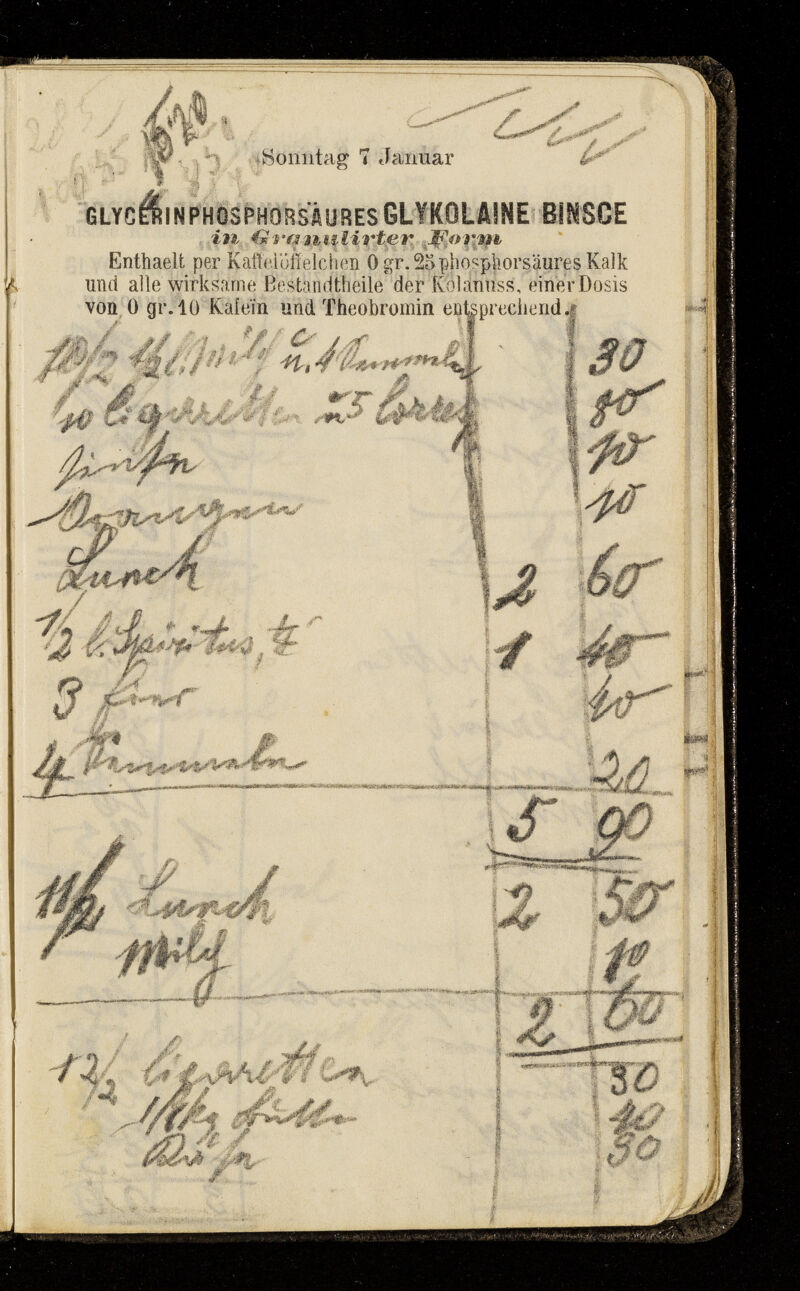 1520
Sonntag 7 Januar
GLYCERINPHOSPHORSÄURES GLYKOLAINE BINSCE
in Granulirter Form
Enthaelt per Kaffelöffelchen 0 gr. 25 phosphorsäures Kalk
und alle wirksame Bestandtheile der Kolanuss, einer Dosis
von 0 gr. 10 Kafeïn und Theobromin entsprechend.
10/2 1/2 l. Milch u. 4 Semmeln 30
10 Cigaretten u 5 80
10
Orangen 10
Lunch 2 60
1/2 l. Spiritus, 1 40
3 Eier 40
4 Semmeln 20
5 90
11/2 Lunch 2 50
Milch 10
2 60
12/2 Cigaretten 30
kg Butter 40
30